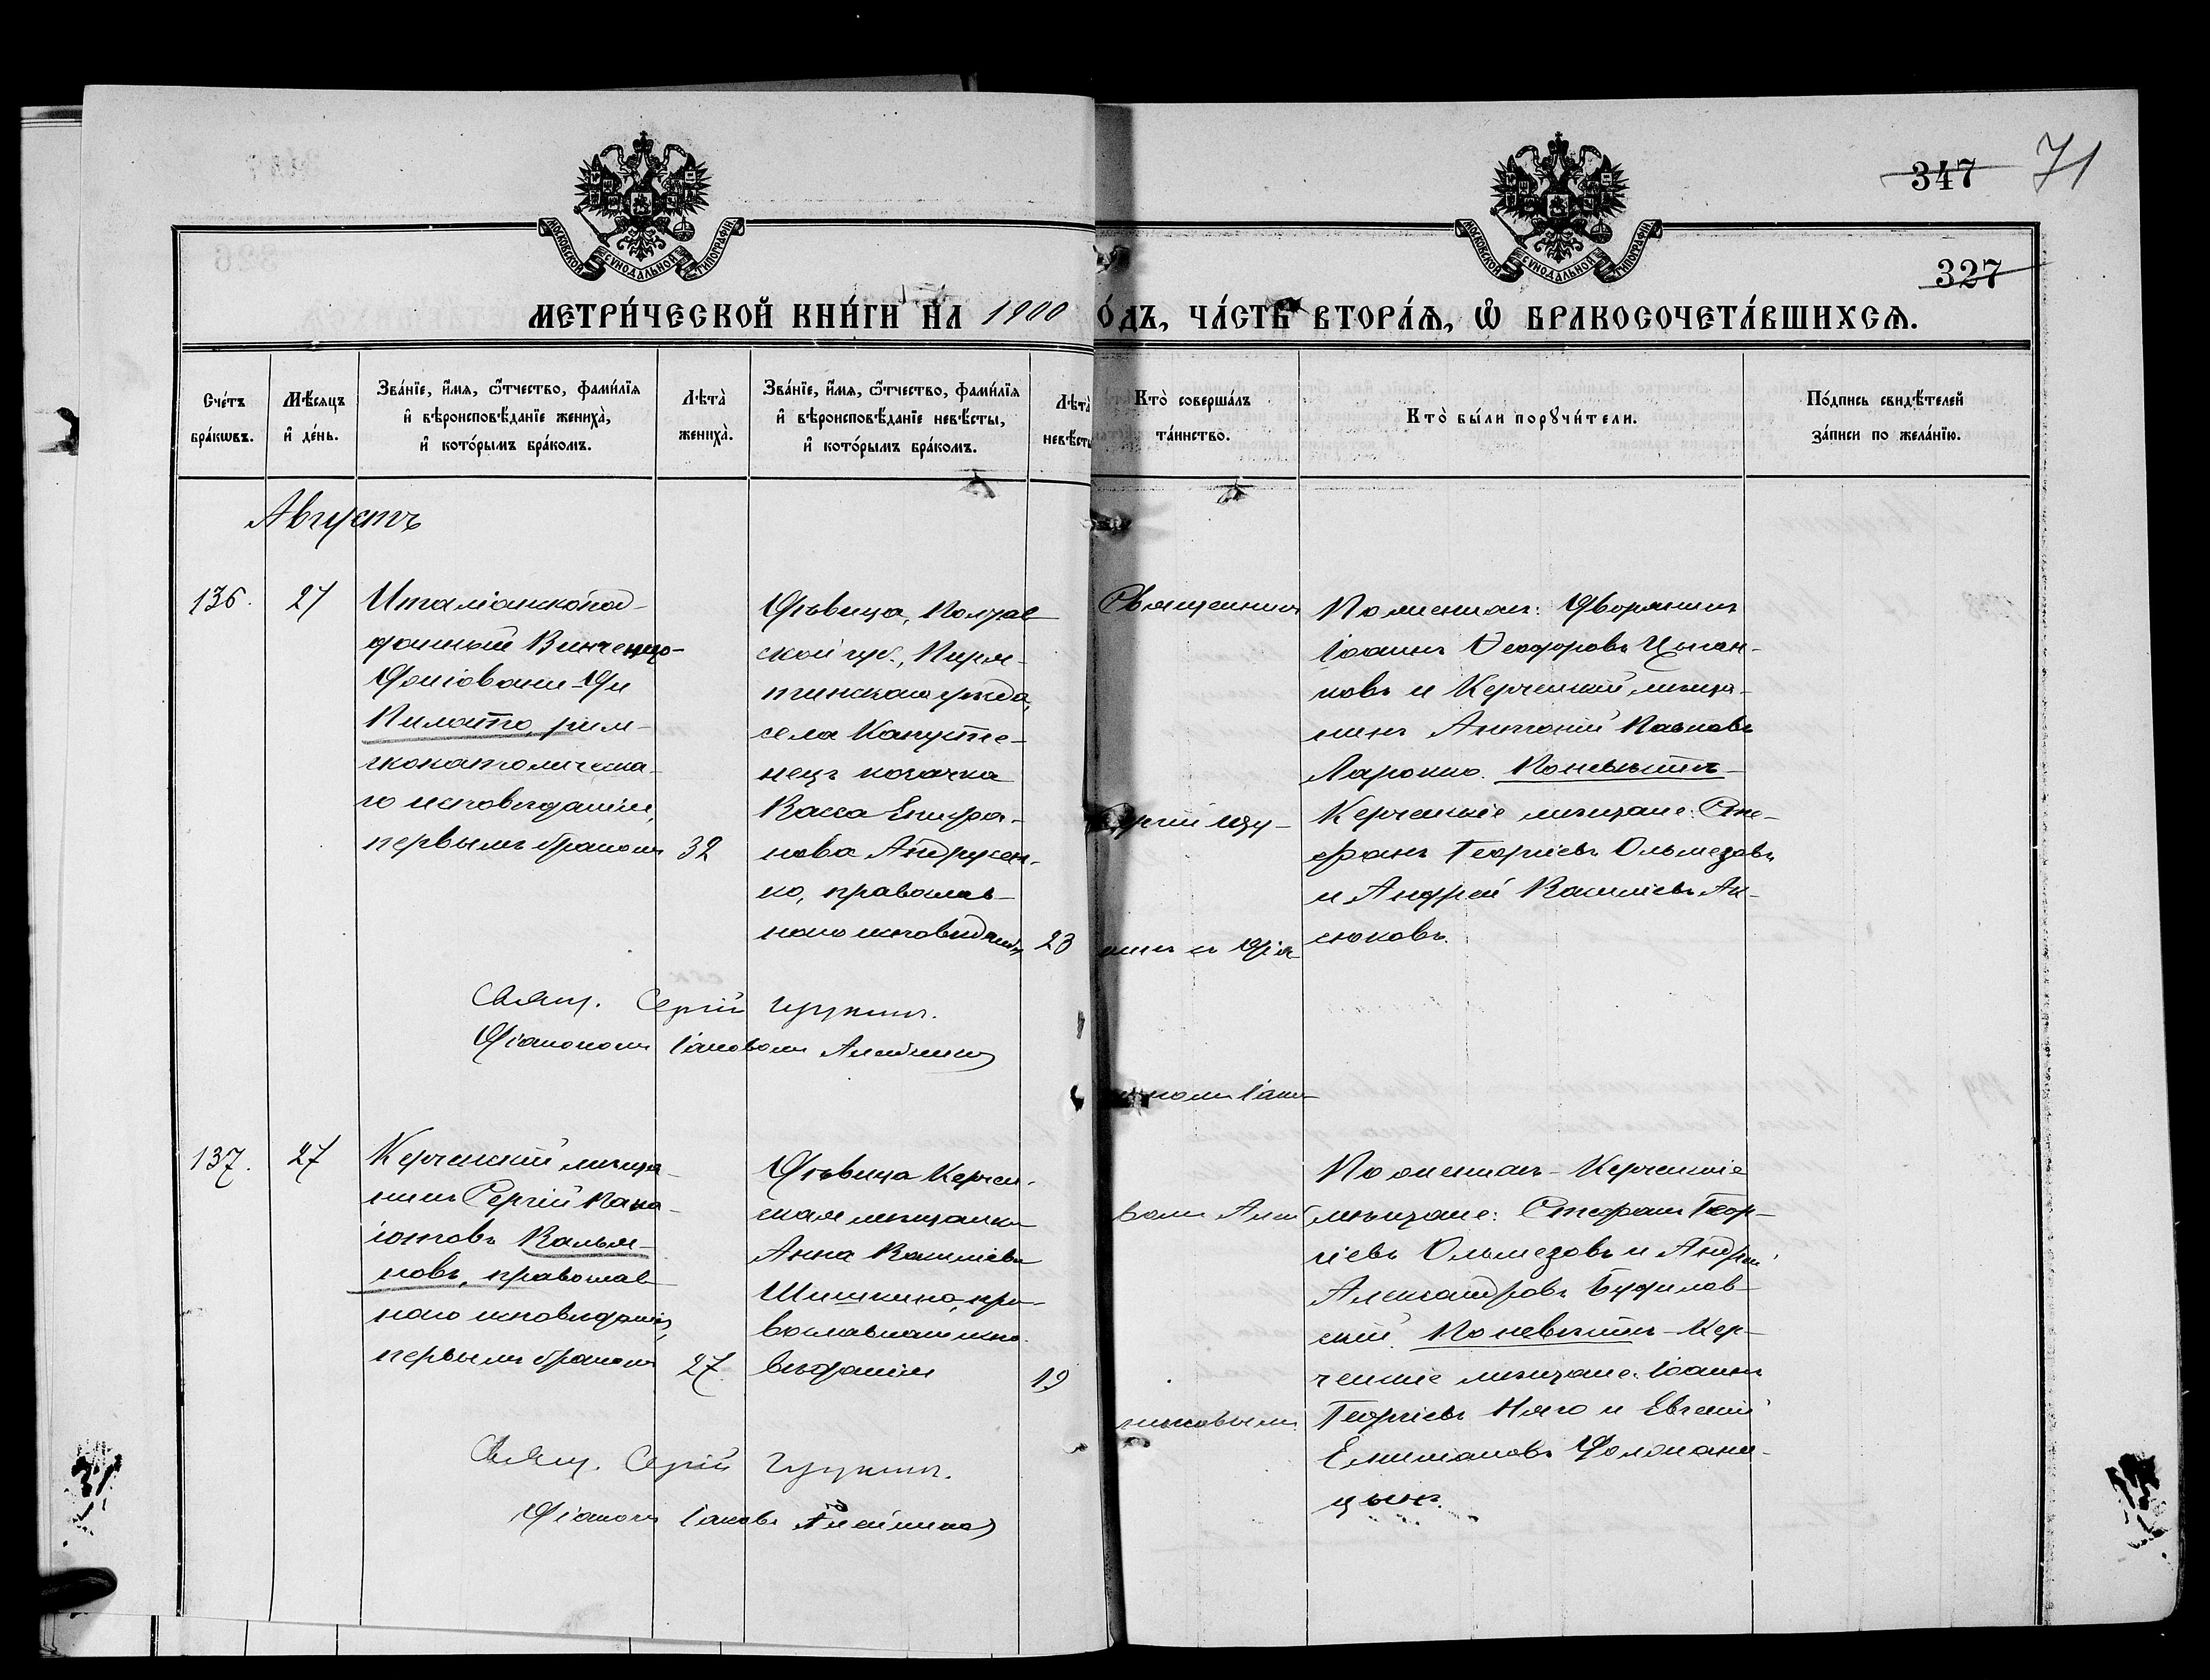 347 71
327
МОСКОВСКОЙ СУНОДАЛЬНОЙ ТИПОГРАФІИ
МОСКОВСКОЙ СУНОДАЛЬНОЙ ТИПОГРАФІИ
МЕТРИ́ЧЕСКОЙ КНИ́ГИ НА 1900
О́ДЪ, ЧА́СТЬ ВТОРА́Ѧ, Ѡ БРАКОСОЧЕТА́ВШИХСѦ.
Сче́тъ
бра́кѡвъ.
Мѣ́сѧцъ
и҆ де́нь.
Зва́нїе, и҆́мѧ, ѻ҆́тчество, фами́лїѧ
и҆ вѣроисповѣ́данїе жениха̀,
и҆ кото́рымъ бра́комъ.
Лѣта̀
жениха̀.
Зва́нїе, и҆́мѧ, ѻ҆́тчество, фами́лїѧ
и҆ вѣроисповѣ́данїе невѣ́сты,
и҆ кото́рымъ бра́комъ.
Лѣта̀
невѣ́сты
Кто̀ соверша́лъ
та́инство.
Кто̀ бы́ли порꙋчи́тели.
По́дпись свидѣ́телей
за́писи по жела́нїю.
Августъ
136.
27
Италіанскоᲂпод-
данный Винченцо-
Джіовани-Ди
Пилатто, рим-
скокатолическа-
го исповѣданія,
первымъ бракомъ
32
Дѣвица, Полтав-
ской губ., Пиря-
тинскаго уѣзда,
села Капусте-
нецъ козачка
Васса Епифа-
нова Андрусен-
ко, православ-
наго исповѣданія
23
Священник
Сергій Цу-
кинъ съ Діа-
кономъ Іако-
вомъ Алей
никовымъ
По женихѣ: Дворянинъ
Іоаннъ Ѳеодоровъ Цыган-
ковъ и Керченскій мѣща-
нинъ Антоній Павловъ
Ларокко. По невѣстѣ-
Керченскіе мѣщане: Сте-
фанъ Георгіевъ Ольмезовъ
и Андрей Василіевъ Ак-
сюковъ.
Свящ. Сергій Цукинъ.
Діаконъ Іаковъ Алейниковъ
137.
27
Керченскій мѣща-
нинъ Сергій Пана-
іотовъ Вальям-
новъ, православ-
наго исповѣданія,
первымъ бракомъ
27.
Дѣвица Керчен-
ская мѣщанка
Анна Василіева
Шишкина, пра-
вославнаго испо-
вѣданія
19
По женихѣ - Керченскіе
мѣщане: Стефанъ Геор-
гіевъ Ольмезовъ и Андрей
Александровъ Буфилов-
скій. По невѣстѣ - Кер-
ченскіе мѣщане: Іоаннъ
Георгіевъ Няго и Евгеній
цынъ.
Свящ. Сергій Цукинъ.
Діаконъ Іаковъ Алейниковъ